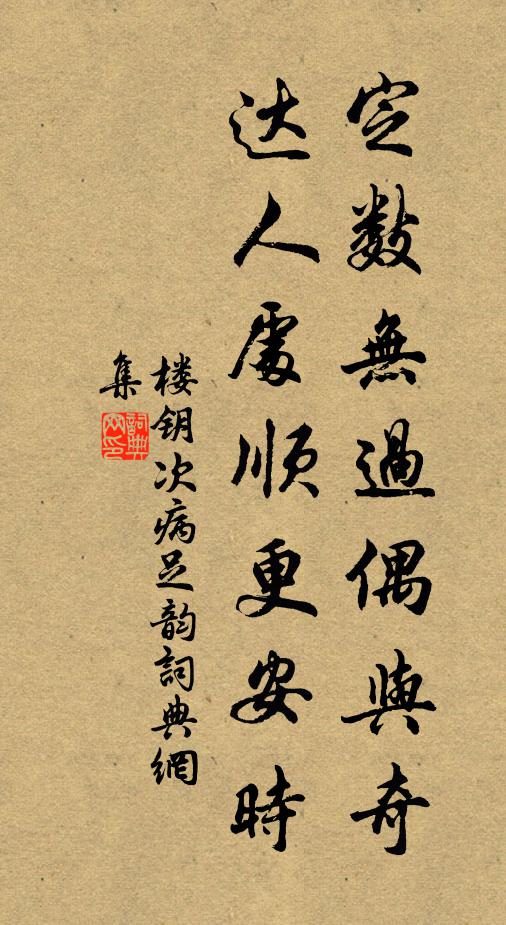 定数無過偶與奇
达人處順更安時
楼钥次病足韵詞典網
集
詞典網印